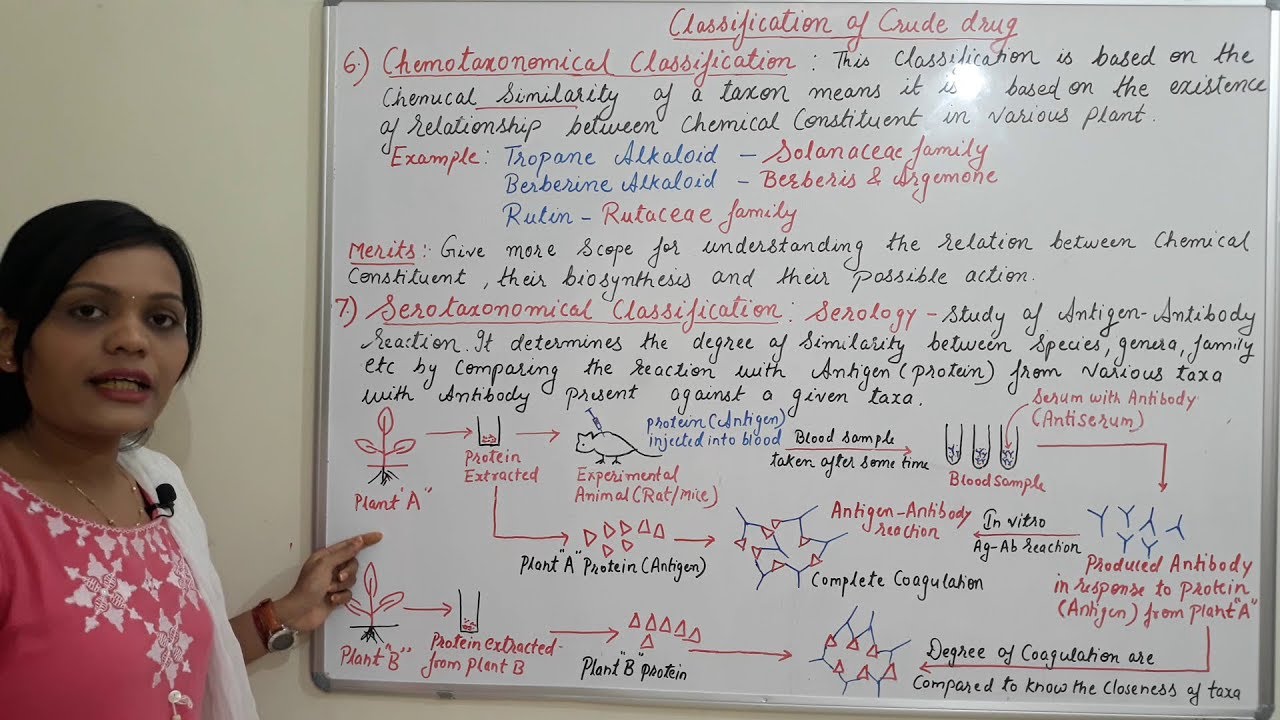 Classification of Crude drug
6.) Chemotaxonomical Classification : This Classification is based on the
Chemical Similarity of a taxon means it is based on the existence
of relationship between Chemical Constituent in various plant.
Example: Tropane Alkaloid - Solanaceae family
Berberine Alkaloid - Berberis & Argemone
Rutin - Rutaceae family
Merits:- Give more scope for understanding the relation between Chemical
Constituent, their biosynthesis and their possible action.
7.) Serotaxonomical Classification : Serology - Study of Antigen-Antibody
reaction. It determines the degree of Similarity between species, genera, family
etc by comparing the reaction with Antigen (protein) from various taxa
with Antibody present against a given taxa.
Plant "A"
Protein
Extracted
protein (Antigen)
injected into blood
Experimental
Animal (Rat/mice)
Blood sample
taken after some time
Serum with Antibody
(Antiserum)
Blood Sample
Plant "A" Protein (Antigen)
Antigen-Antibody
reaction
Complete Coagulation
In vitro
Ag-Ab reaction
Produced Antibody
in response to protein
(Antigen) from plant "A"
Plant "B"
Protein extracted
from plant B
Plant "B" protein
Degree of Coagulation are
Compared to know the Closeness of taxa